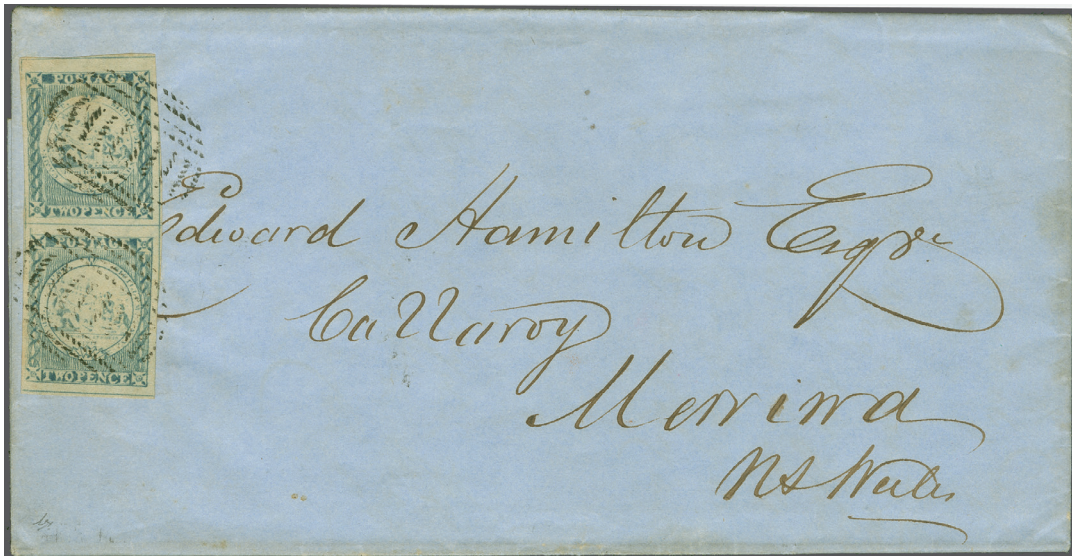 POSTAGE
TWO PENCE
POSTAGE
TWO PENCE
Edward Hamilton Esqre
Callaroy
Merriwa
N S Wales